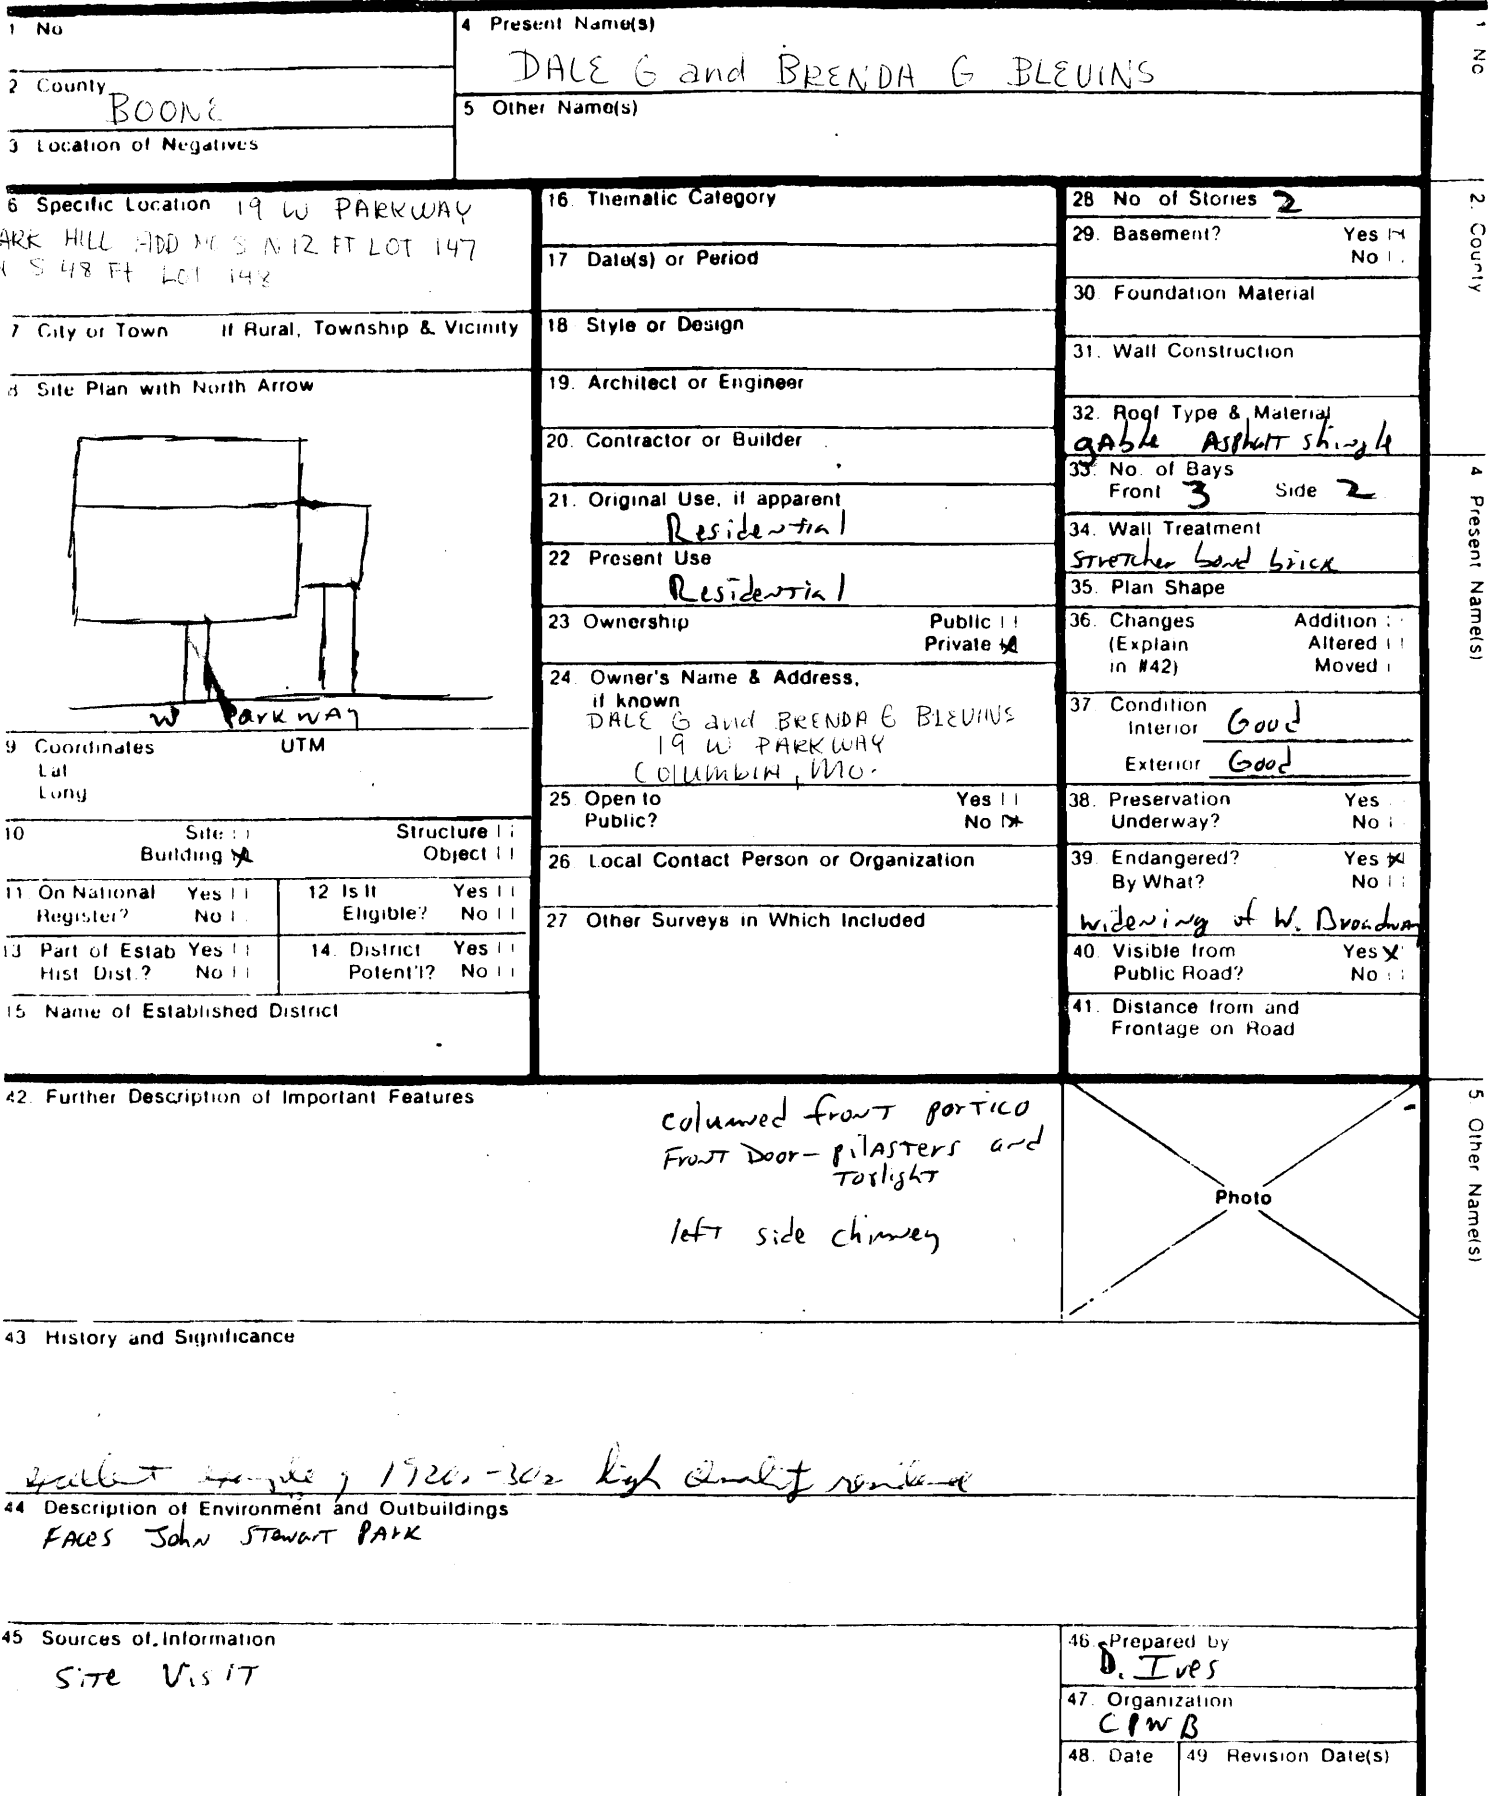 1 No
4 Present Name(s)
DALE G and BRENDA G BLEVINS
2 County
BOONE
5 Other Name(s)
3 Location of Negatives
6 Specific Location 19 W PARKWAY
ARK HILL ADD N S N 12 FT LOT 147
S 48 Ft LOT 148
7 City or Town If Rural, Township & Vicinity
8 Site Plan with North Arrow
W PARKWAY
9 Coordinates UTM
Lat
Long
10 Site
Structure
Building
Object
11 On National Register? Yes No
12 Is It Eligible? Yes No
13 Part of Estab Hist Dist.? Yes No
14. District Potent'l? Yes No
15 Name of Established District
16. Thematic Category
17 Date(s) or Period
18 Style or Design
19. Architect or Engineer
20. Contractor or Builder
21. Original Use, if apparent
Residential
22 Present Use
Residential
23 Ownership Public
Private
24. Owner's Name & Address,
if known
DALE G and BRENDA G BLEVINS
19 W PARKWAY
COLUMBIA, MO.
25 Open to Public? Yes No
26. Local Contact Person or Organization
27 Other Surveys in Which Included
28 No of Stories 2
29. Basement? Yes
No
30 Foundation Material
31. Wall Construction
32. Roof Type & Material
gable Asphalt shingle
33. No. of Bays
Front 3 Side 2
34. Wall Treatment
Stretcher bond brick
35. Plan Shape
36. Changes Addition
(Explain Altered
in #42) Moved
37. Condition
Interior Good
Exterior Good
38. Preservation Yes
Underway? No
39. Endangered? Yes
By What? No
widening of W. Broadway
40. Visible from Yes
Public Road? No
41. Distance from and
Frontage on Road
42. Further Description of Important Features
columned front portico
Front Door - pilasters and
Torlight
left side chimney
Photo
43 History and Significance
excellent example of 1920s-30s high quality residence
44 Description of Environment and Outbuildings
FACES John Stewart PARK
45 Sources of Information
Site Visit
46. Prepared by
D. Ives
47. Organization
CPWB
48. Date
49 Revision Date(s)
1 No
2. County
4 Present Name(s)
5. Other Name(s)